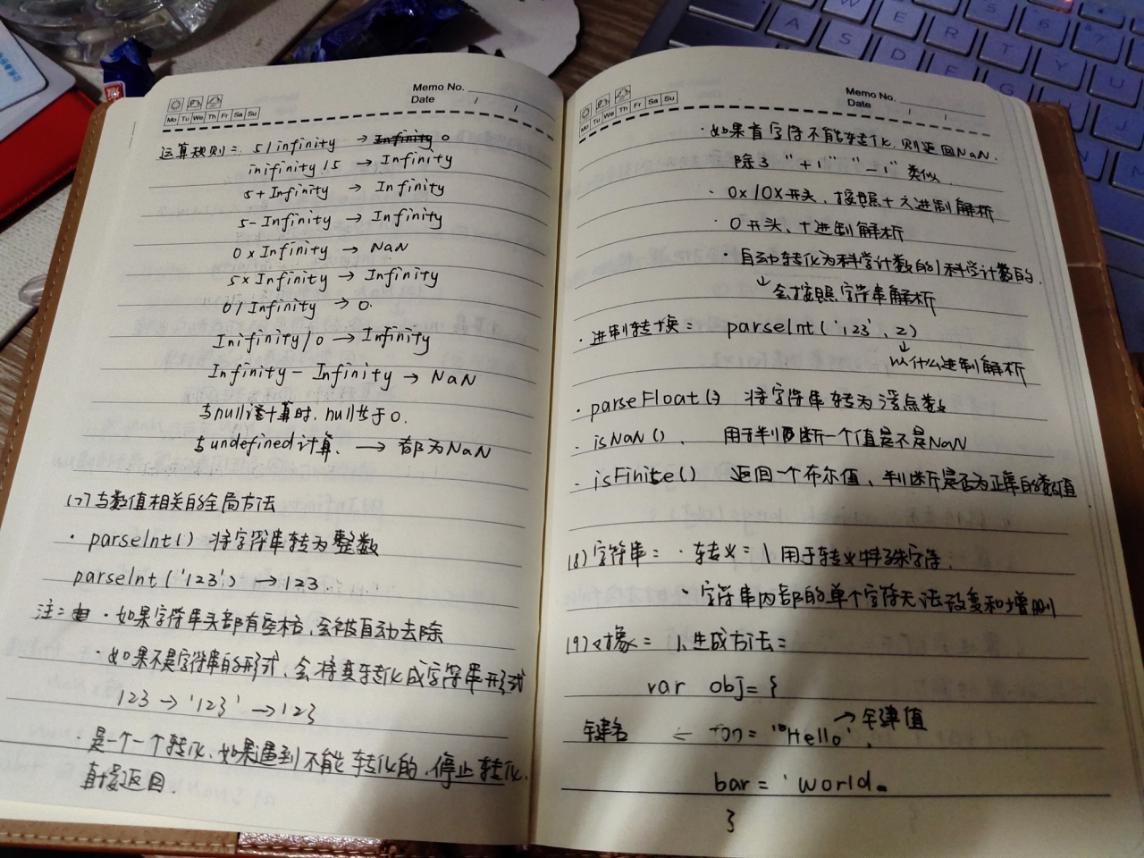 Memo No.
Date / /
Mo Tu We Th Fr Sa Su
运算规则: 5/infinity → Infinity 0
inifinity/5 → Infinity
5+Infinity → Infinity
5-Infinity → Infinity
0×Infinity → NaN
5×Infinity → Infinity
0/Infinity → 0.
Inifinity/0 → Infinity
Infinity-Infinity → NaN
与null计算时, null等于0.
与undefined计算, → 都为NaN
(7)与数值相关的全局方法
· parseInt() 将字符串转为整数
parseInt('123') → 123.
注: · 如果字符串头部有空格, 会被自动去除
· 如果不是字符串的形式, 会将其转化成字符串形式
123→'123'→123
· 是一个一个转化, 如果遇到不能转化的, 停止转化,
直接返回.
Memo No.
Date / /
Mo Tu We Th Fr Sa Su
· 如果首字符不能转化, 则返回NaN.
除了 "+1" "-1" 类似.
· 0x/0X开头, 按照十六进制解析
· 0开头, 十进制解析
· 自动转化为科学计数的/科学计数的.
↳会按照字符串解析
· 进制转换: parseInt('123', 2)
↓
以什么进制解析
· parseFloat() 将字符串转为浮点数
· isNaN(), 用于判断一个值是不是NaN
· isFinite() 返回一个布尔值, 判断是否为正常的数值
(8)字符串: · 转义: \ 用于转义特殊字符.
· 字符串内部的单个字符无法改变和增删
(9)对象: 1. 生成方法:
var obj = {
键名 ← foo: 'Hello', → 键值
bar: 'World
}